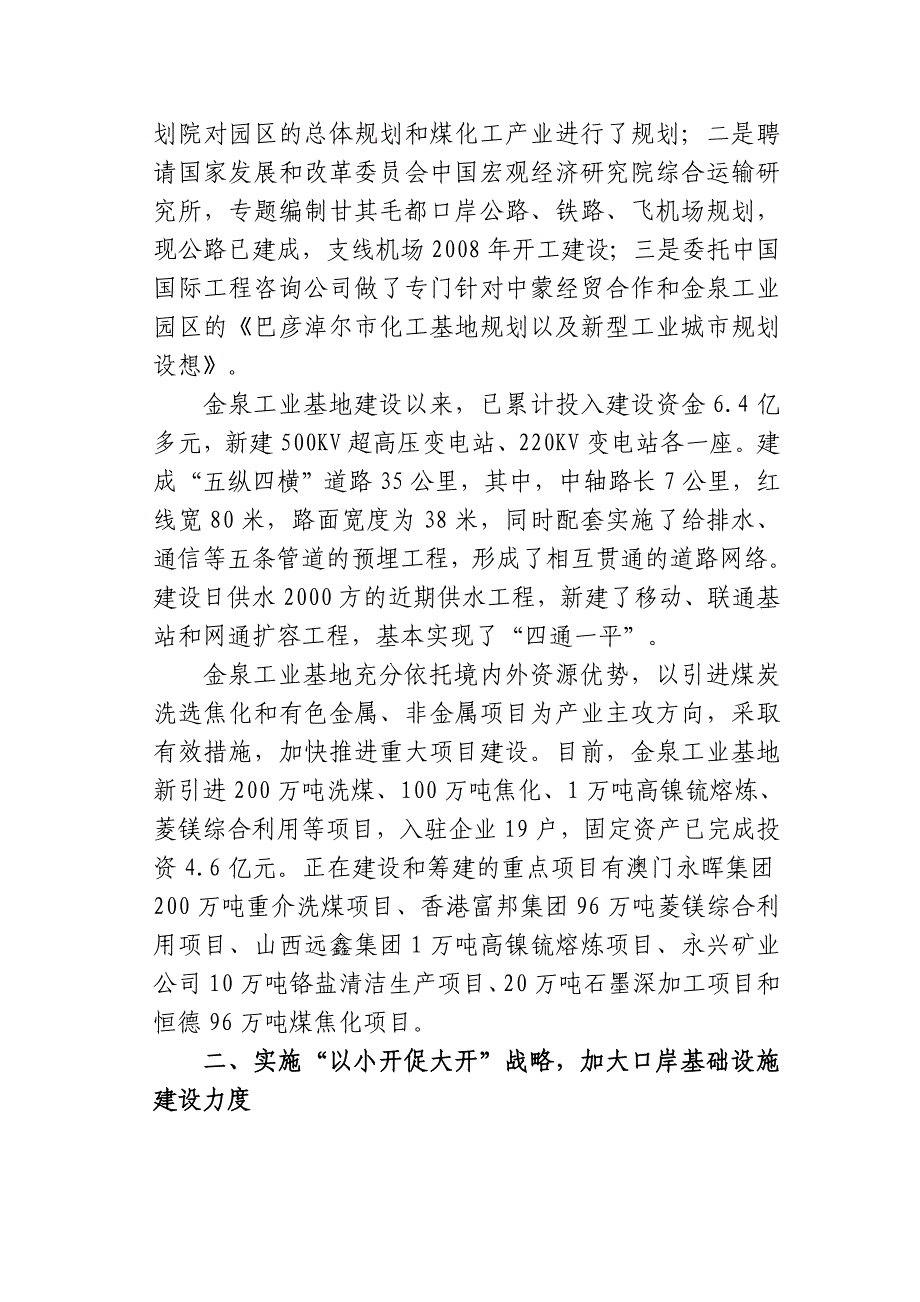 划院对园区的总体规划和煤化工产业进行了规划；二是聘
请国家发展和改革委员会中国宏观经济研究院综合运输研
究所，专题编制甘其毛都口岸公路、铁路、飞机场规划，
现公路已建成，支线机场 2008 年开工建设；三是委托中国
国际工程咨询公司做了专门针对中蒙经贸合作和金泉工业
园区的《巴彦淖尔市化工基地规划以及新型工业城市规划
设想》。
金泉工业基地建设以来，已累计投入建设资金 6.4 亿
多元，新建 500KV 超高压变电站、220KV 变电站各一座。建
成“五纵四横”道路 35 公里，其中，中轴路长 7 公里，红
线宽 80 米，路面宽度为 38 米，同时配套实施了给排水、
通信等五条管道的预埋工程，形成了相互贯通的道路网络。
建设日供水 2000 方的近期供水工程，新建了移动、联通基
站和网通扩容工程，基本实现了“四通一平”。
金泉工业基地充分依托境内外资源优势，以引进煤炭
洗选焦化和有色金属、非金属项目为产业主攻方向，采取
有效措施，加快推进重大项目建设。目前，金泉工业基地
新引进 200 万吨洗煤、100 万吨焦化、1 万吨高镍锍熔炼、
菱镁综合利用等项目，入驻企业 19 户，固定资产已完成投
资 4.6 亿元。正在建设和筹建的重点项目有澳门永晖集团
200 万吨重介洗煤项目、香港富邦集团 96 万吨菱镁综合利
用项目、山西远鑫集团 1 万吨高镍锍熔炼项目、永兴矿业
公司 10 万吨铬盐清洁生产项目、20 万吨石墨深加工项目和
恒德 96 万吨煤焦化项目。
二、实施“以小开促大开”战略，加大口岸基础设施
建设力度